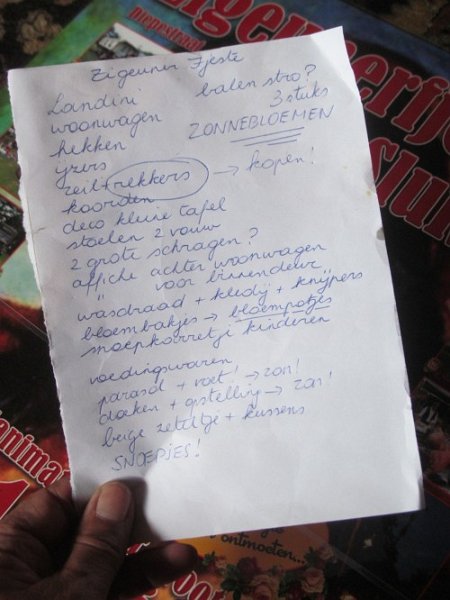 Zigeuner Fjeste
Landini
balen stro?
3 stuks
woonwagen
ZONNEBLOEMEN
hekken
ijzers
zeil + rekkers → kopen!
koorden
deco kleine tafel
stoelen 2 vouw
2 grote schragen?
affiche achter woonwagen
" voor binnendeur
wasdraad + kledij + knijpers
bloembakjes → bloempotjes
snoepkorretji kinderen
voedingswaren
parasol + voet! → zon!
doeken + opstelling → zon!
beige zeteltje + kussens
SNOEPJES!
piepestraat
igeunerije
slui
enima
ontmoeten...